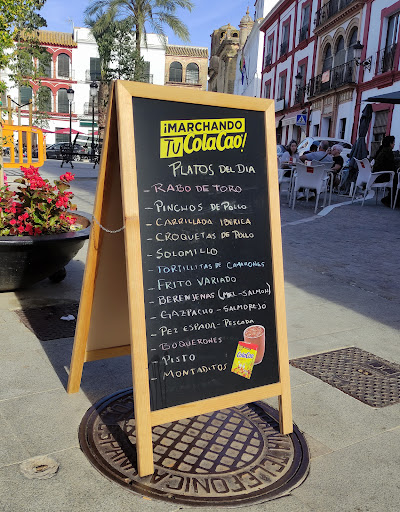 ¡MARCHANDO
TU ColaCao!
PLATOS DEL DIA
- RABO DE TORO
- PINCHOS DE POLLO
- CARRILLADA IBERICA
- CROQUETAS DE POLLO
- SOLOMILLO
- TORTILLITAS DE CAMARONES
- FRITO VARIADO
- BERENJENAS (MIEL - SALMOREJO)
- GAZPACHO - SALMOREJO
- PEZ ESPADA - PESCADA
- BOQUERONES
- PISTO
- MONTADITOS
ColaCao
TELEFONICA